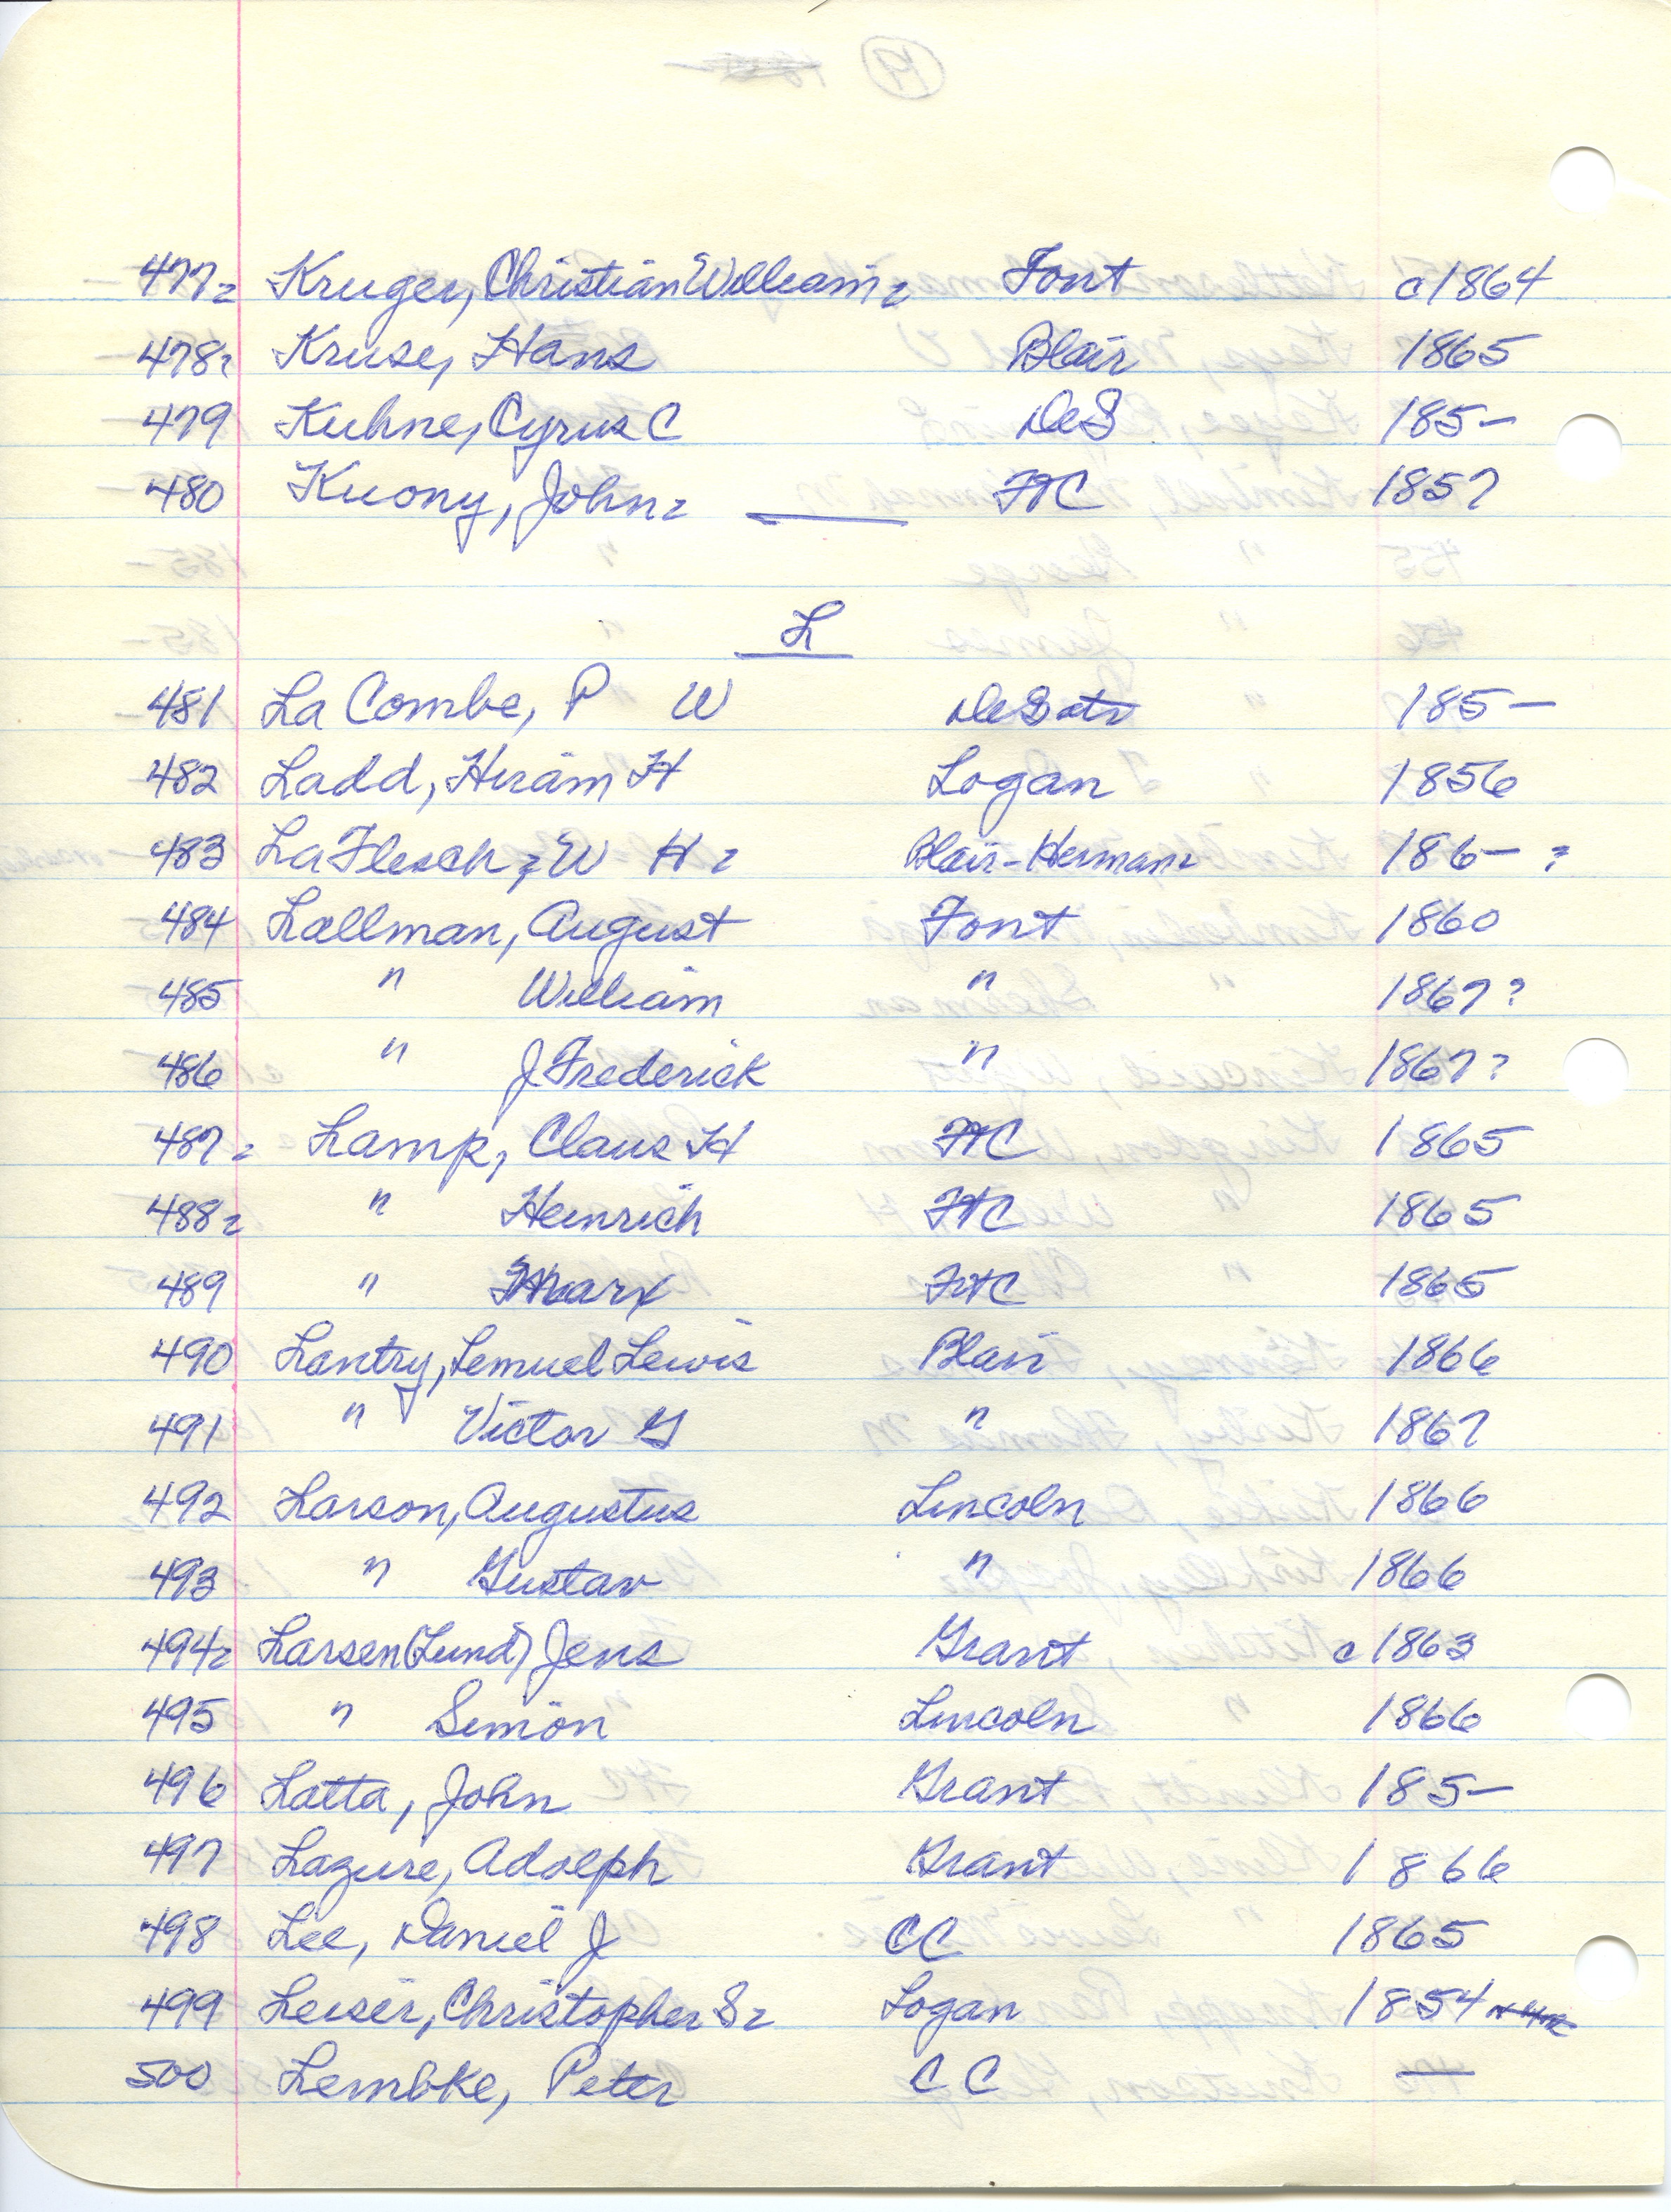 477 Kruger, Christian William Font c1864
478 Kruse, Hans Blair 1865
479 Kuhne, Cyrus C DeS 185-
480 Kuony, John FtC 1857
L
481 La Combe, P W DeSoto 185-
482 Ladd, Hiram H Logan 1856
483 LaFlesch, W H Blair-Herman 186- ?
484 Lallman, August Font 1860
485 " William " 1867?
486 " J Frederick " 1867?
487 Lamp, Claus H FtC 1865
488 " Heinrich FtC 1865
489 " Marx FtC 1865
490 Lantry, Lemuel Lewis Blair 1866
491 " Victor G " 1867
492 Larson, Augustus Lincoln 1866
493 " Gustav " 1866
494 Larsen (Lund) Jens Grant c1863
495 " Simon Lincoln 1866
496 Latta, John Grant 185-
497 Lazure, Adolph Grant 1866
498 Lee, Daniel J CC 1865
499 Leiser, Christopher S Logan 1854
500 Lembke, Peter CC —